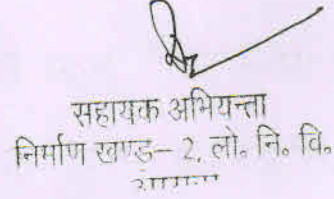 सहायक अभियन्ता
निर्माण खण्ड– 2, लो॰ नि॰ वि॰